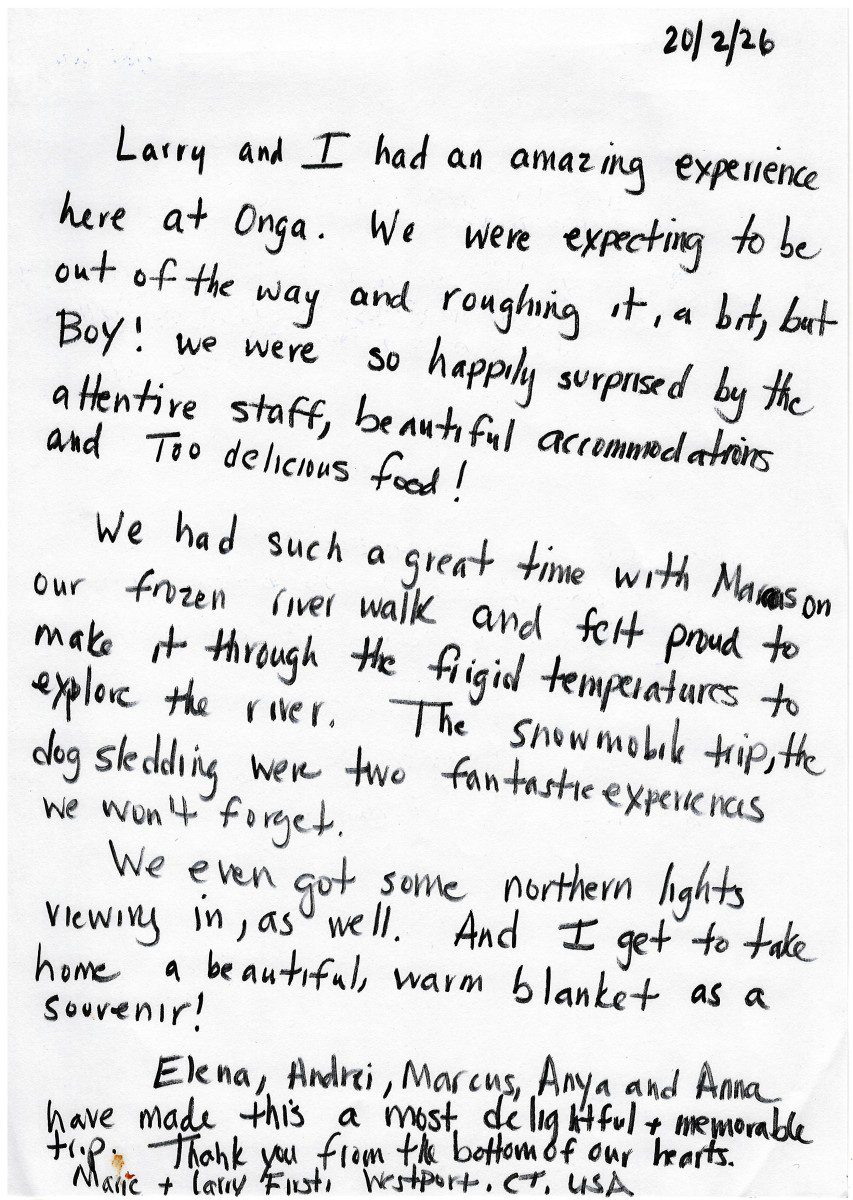 20/2/26
Larry and I had an amazing experience
here at Onga. We were expecting to be
out of the way and roughing it, a bit, but
Boy! we were so happily surprised by the
attentive staff, beautiful accommodations
and Too delicious food!
We had such a great time with Marcus on
our frozen river walk and felt proud to
make it through the frigid temperatures to
explore the river. The snowmobile trip, the
dog sledding were two fantastic experiences
we won't forget.
We even got some northern lights
viewing in, as well. And I get to take
home a beautiful, warm blanket as a
souvenir!
Elena, Andrei, Marcus, Anya and Anna
have made this a most delightful + memorable
trip. Thank you from the bottom of our hearts.
Marie + Larry Westport, CT, USA